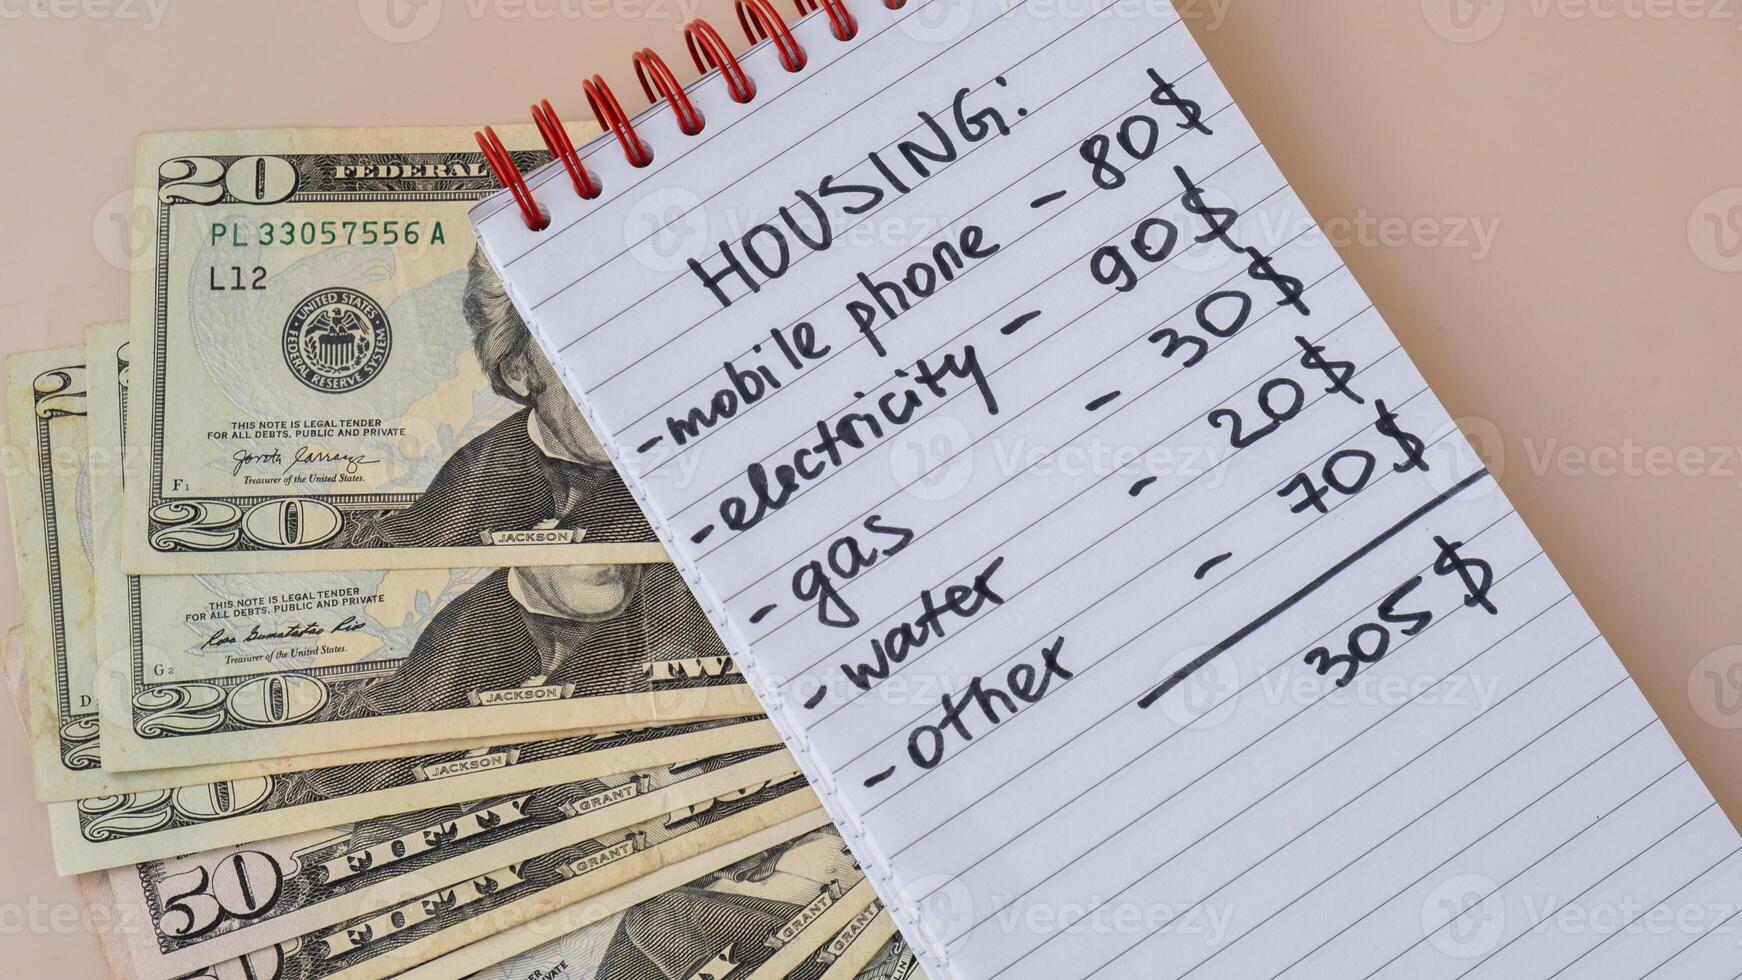 HOUSING:
- mobile phone - 80$
- electricity - 90$
- gas - 30$
- water - 20$
- other - 70$
305$
20 FEDERAL
PL 33057556 A
L12
UNITED STATES FEDERAL RESERVE SYSTEM
THIS NOTE IS LEGAL TENDER
FOR ALL DEBTS, PUBLIC AND PRIVATE
Treasurer of the United States.
F1
20 JACKSON
THIS NOTE IS LEGAL TENDER
FOR ALL DEBTS, PUBLIC AND PRIVATE
Treasurer of the United States.
G2
20 JACKSON
20 JACKSON
50 FIFTY GRANT
FIFTY GRANT
GRANT
GRANT
Vecteezy